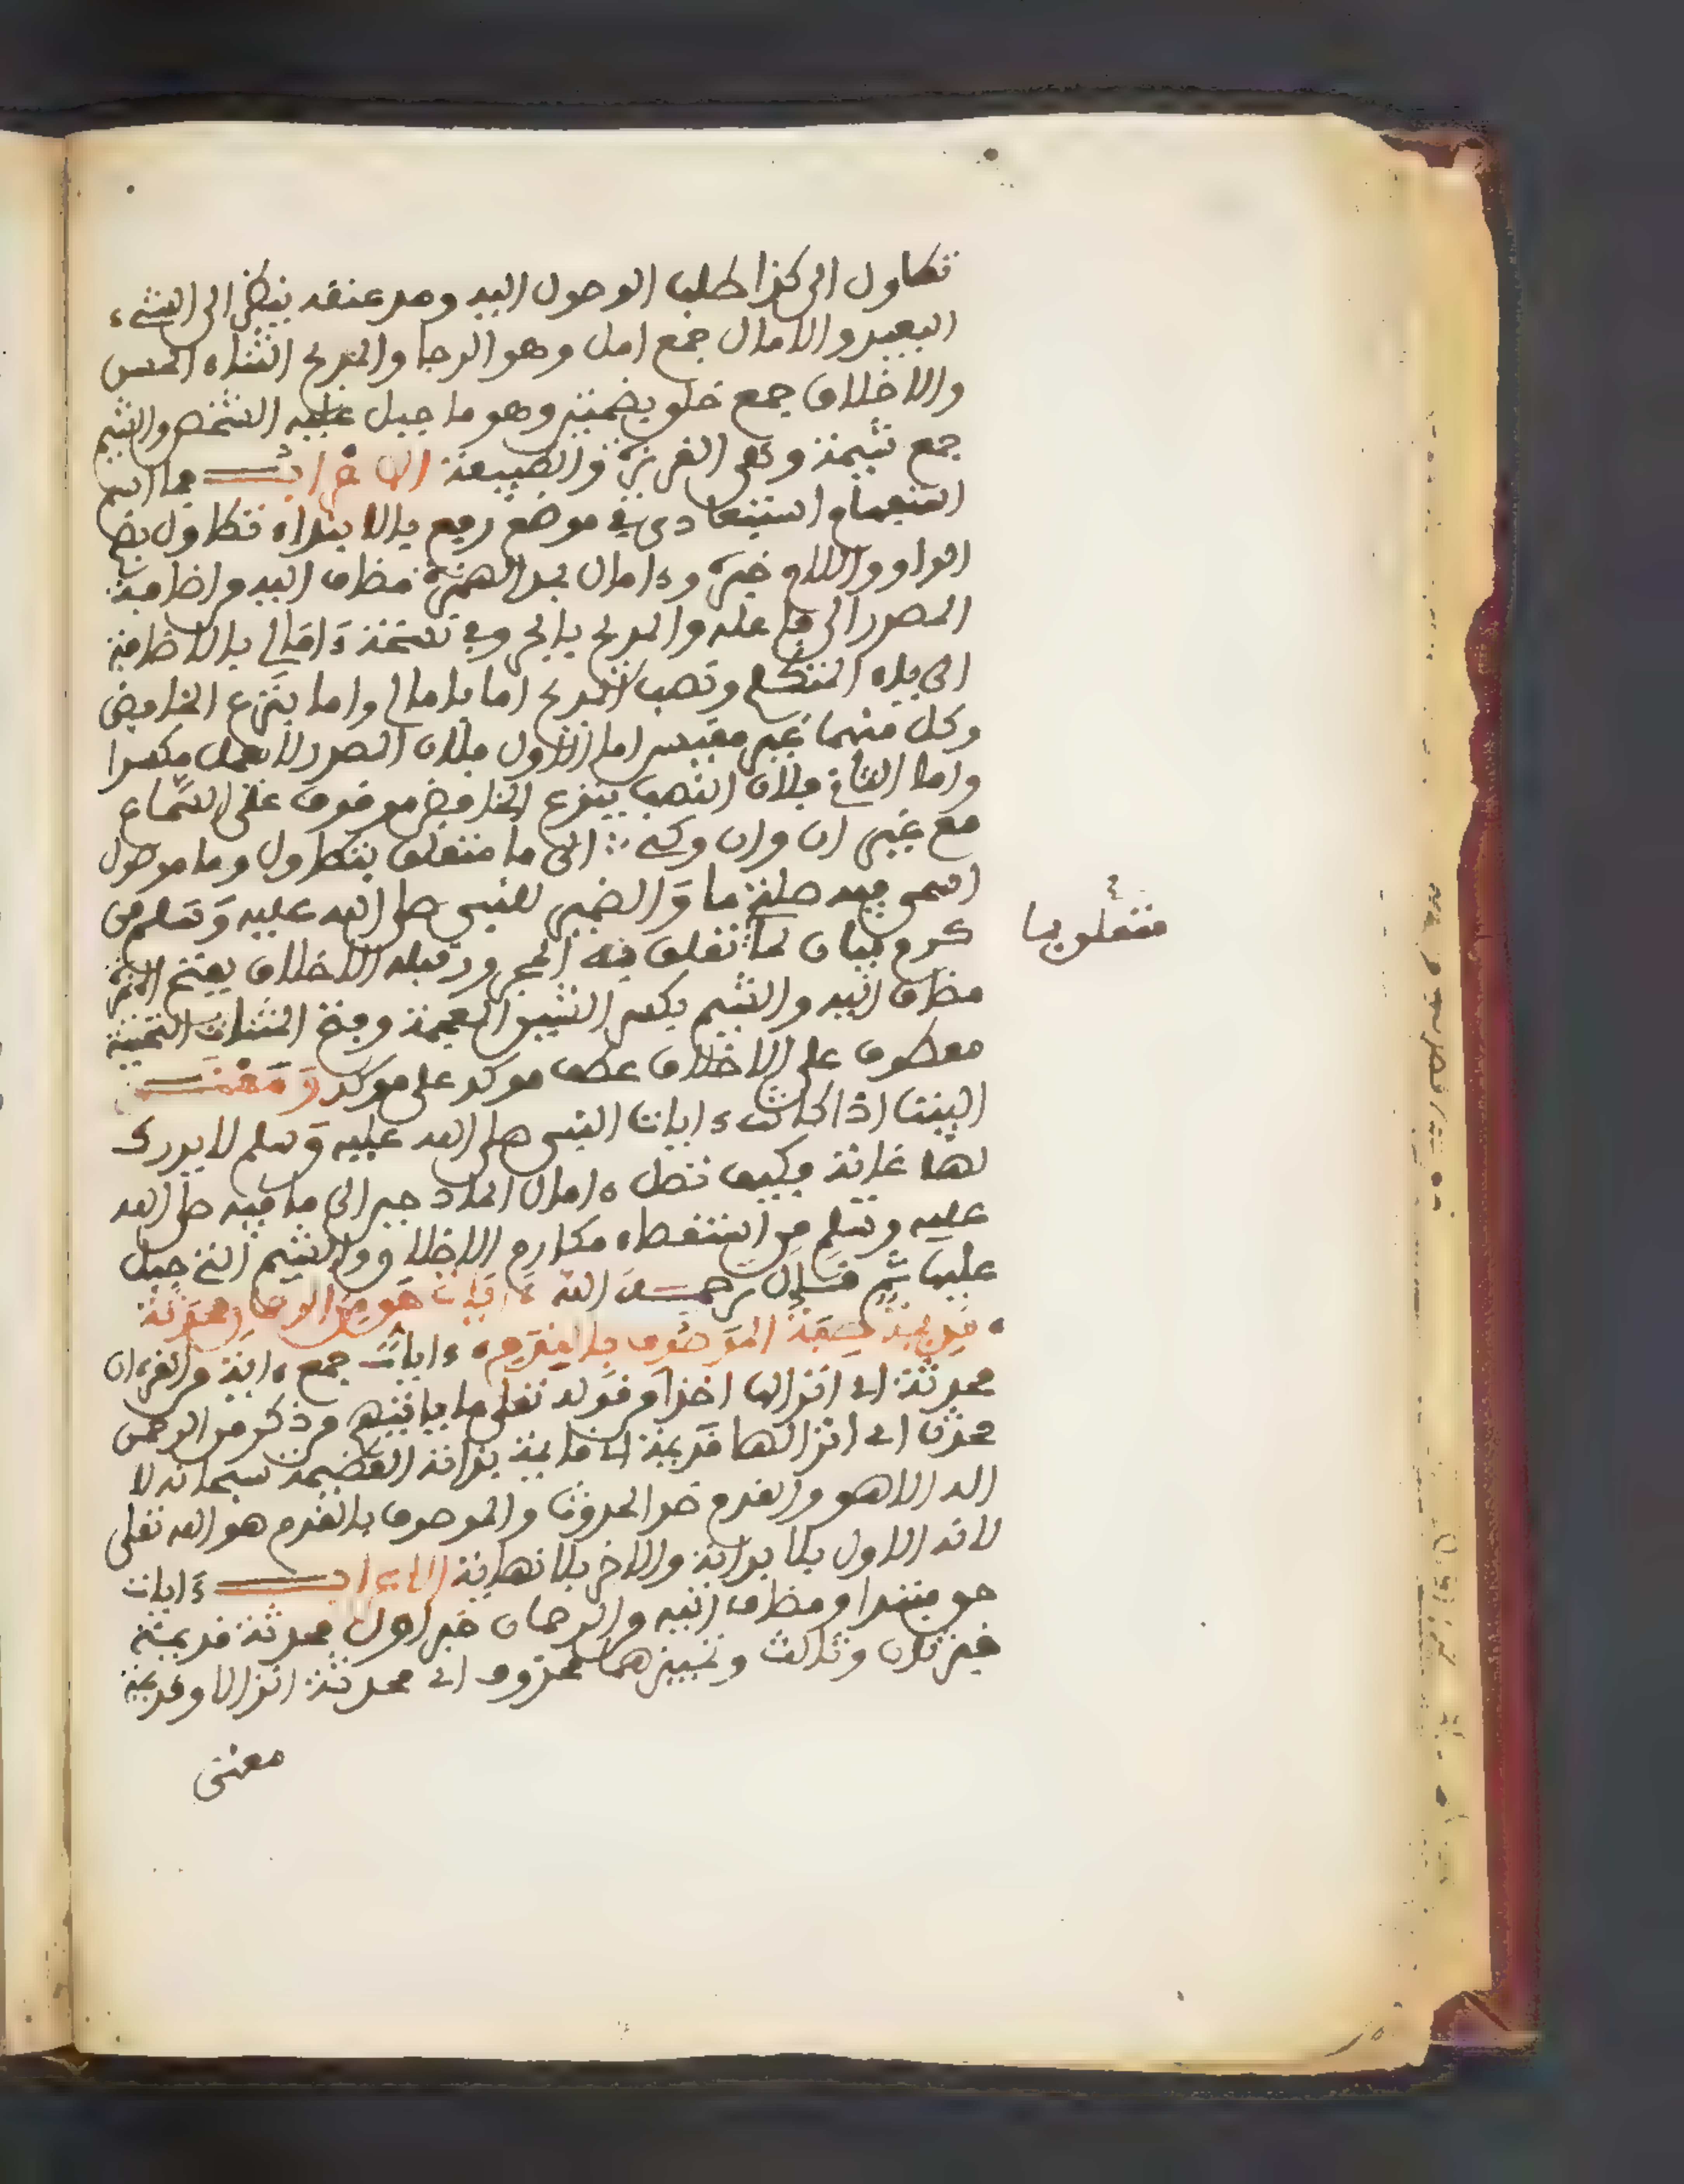 تطاول الى كذا طلب الوصول اليه ومد عنقه ينظر الى الشيء
البعيد والامال جمع امل وهو الرجا والمديح الثناء الحسن
والاخلاق جمع خلق بضمتين وهو ما جبل عليه الشخص والشيم
جمع شيمة وهي الغريزة والطبيعة الاعراب فما اسم
استفهام استبعادي في موضع رفع بالابتداء تطاول بضم
الواو واللام خبره وءامال بمد الهمزة مضاف اليه من اضافة
المصدر الى فاعله والمديح بالجر وفي نسخة ءامالي بالاضافة
الى ياء المتكلم ونصب المديح اما بامالي واما بنزع الخافض
وكل منهما غير مقيس اما الاول فلان المصدر لا يعمل مكسرا
واما الثاني فلان النصب بنزع الخافض موقوف على السماع
مع غير ان وان وكي الى ما متعلق بتطاول وما موصول
اسمي فيه صلة ما والضمير للنبي صلى الله عليه وسلم من
كرم بيان لما تعلق به المجرور قبله الاخلاق بفتح الهمزة
مضاف اليه والشيم بكسر الشين المعجمة وفتح المثنات التحتية
معطوف على الاخلاق عطف موكد على موكد ومعنى
البيت اذا كانت ءايات النبي صلى الله عليه وسلم لا يدرك
لها غاية فكيف تصل ءامال المادحين الى ما فيه صلى الله
عليه وسلم من استقصاء مكارم الاخلاق والشيم التي جبل
عليها ثم قال رحمه الله ءايات حق من الرحمان محدثة
قديمة صفة الموصوف بالقدم ءايات جمع ءاية من القرءان
محدثة اي انزالها اخذا من قوله تعلى ما ياتيهم من ذكر من الرحمن
محدث اي انزالها قديمة اي قايمة بذاته العظيمة سبحانه لا
اله الا هو والقدم ضد الحدوث والموصوف بالقدم هو الله تعلى
لانه الاول بلا بداية والاخر بلا نهاية الاعراب ءايات
حق مبتدا ومضاف اليه والرحمان خبر اول محدثة قديمة
خبر ثان وثالث وتمييزهما محذوف اي محدثة انزالا وقديمة
معنى
متعلق بها